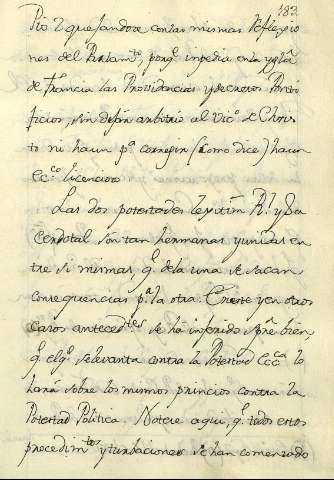 183
Pio 2 quejandose con las mismas Reflexio
nes del Parlamto, porq.e impedia en la Yglã
de Francia las Providencias y decretos Ponti
ficios, sin dejar arbitrio al Vic.o de Chris
to ni haun p.a corregir (como dice) haun
Ecc.co licencioso
Las dos potestades Rl. y Sa
cerdotal son tan hermanas y unidas en
tre si mismas, q.e de la una se sacan
consequencias p.a la otra. En este y en otros
casos antecedtes se ha inferido spre bien
q.e el q.e se levanta contra la Potestad Ecc.ca lo
hará sobre los mismos principios contra la
Potestad Politica. Notese aqui, q.e todos estos
procedimtos y turbaciones se han comenzado